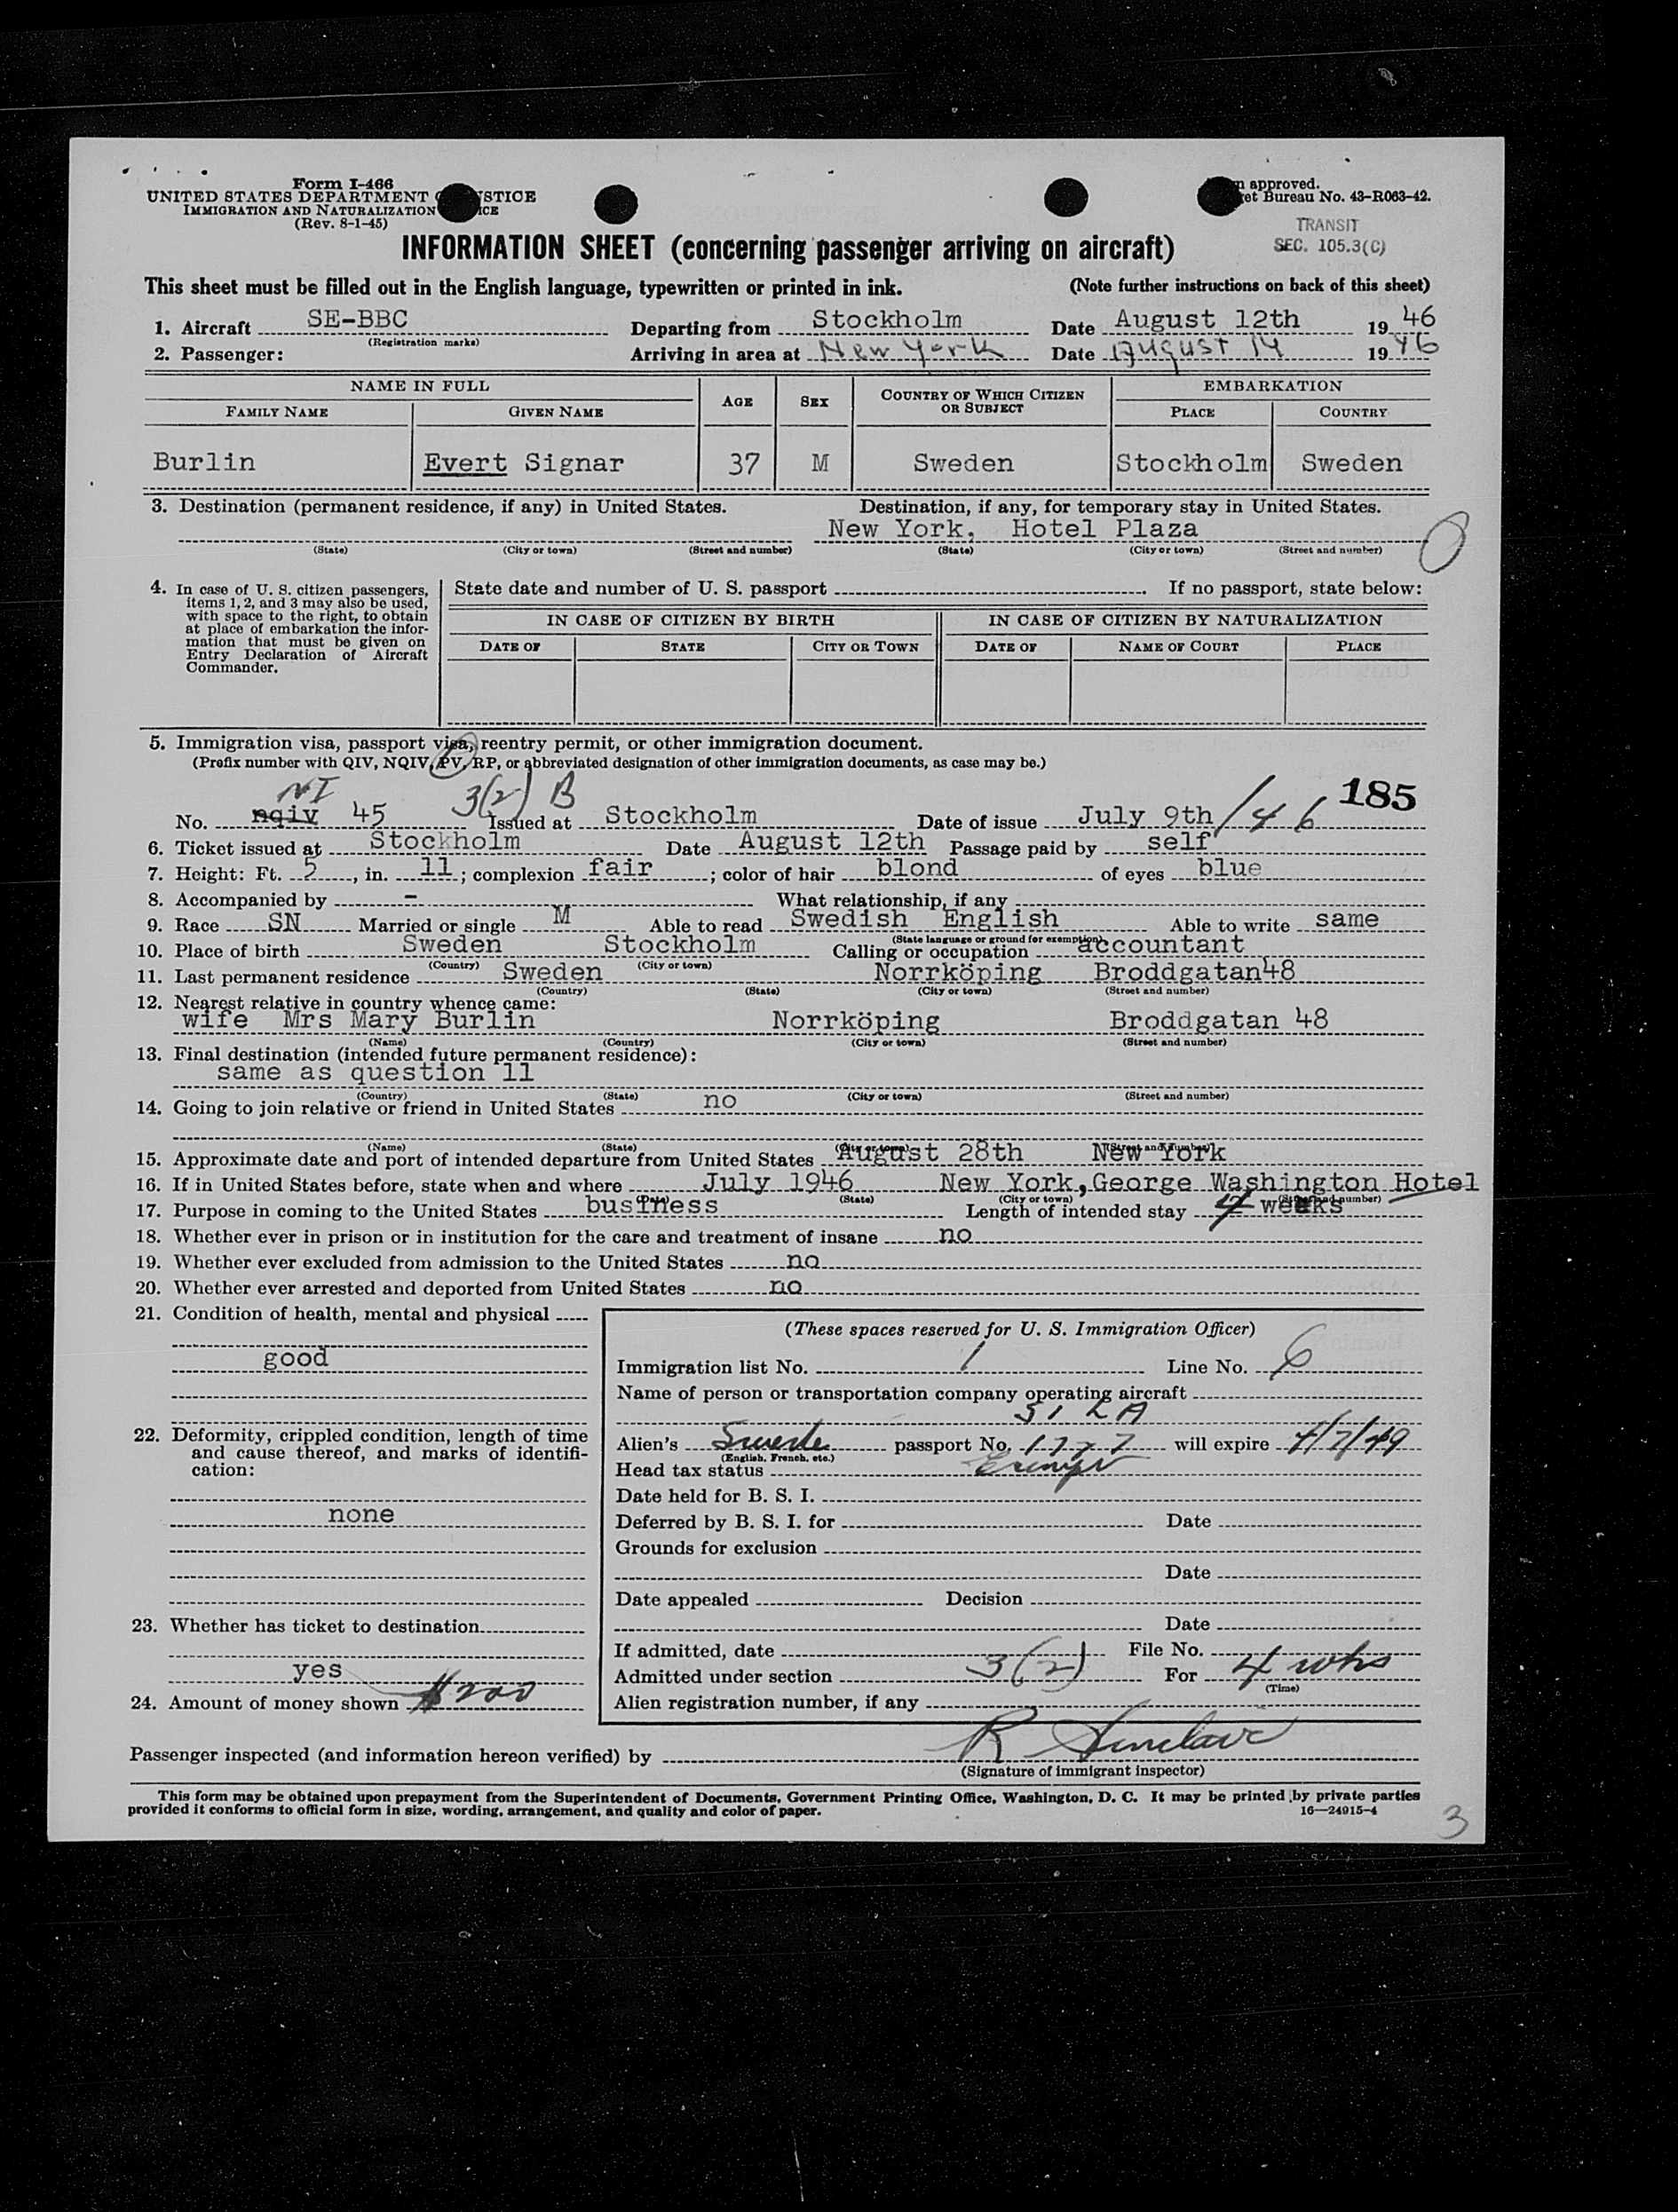 Form I-466
UNITED STATES DEPARTMENT STICE
IMMIGRATION AND NATURALIZATION ICE
(Rev. 8-1-45)
approved.
et Bureau No. 43-R063-42.
TRANSIT
SEC. 105.3(C)
INFORMATION SHEET (concerning passenger arriving on aircraft)
This sheet must be filled out in the English language, typewritten or printed in ink. (Note further instructions on back of this sheet)
1. Aircraft SE-BBC Departing from Stockholm Date August 12th 19 46
(Registration marks)
2. Passenger: Arriving in area at New York Date August 14 19 46
NAME IN FULL AGE SEX COUNTRY OF WHICH CITIZEN OR SUBJECT EMBARKATION
FAMILY NAME GIVEN NAME PLACE COUNTRY
Burlin Evert Signar 37 M Sweden Stockholm Sweden
3. Destination (permanent residence, if any) in United States. Destination, if any, for temporary stay in United States.
New York, Hotel Plaza
(State) (City or town) (Street and number) (State) (City or town) (Street and number)
4. In case of U. S. citizen passengers, items 1, 2, and 3 may also be used, with space to the right, to obtain at place of embarkation the information that must be given on Entry Declaration of Aircraft Commander.
State date and number of U. S. passport . If no passport, state below:
IN CASE OF CITIZEN BY BIRTH IN CASE OF CITIZEN BY NATURALIZATION
DATE OF STATE CITY OR TOWN DATE OF NAME OF COURT PLACE
5. Immigration visa, passport visa, reentry permit, or other immigration document.
(Prefix number with QIV, NQIV, PV, RP, or abbreviated designation of other immigration documents, as case may be.)
NI 3(2) B 185
No. nqiv 45 Issued at Stockholm Date of issue July 9th/46
6. Ticket issued at Stockholm Date August 12th Passage paid by self
7. Height: Ft. 5, in. 11; complexion fair; color of hair blond of eyes blue
8. Accompanied by - What relationship, if any
9. Race SN Married or single M Able to read Swedish English Able to write same
(State language or ground for exemption)
10. Place of birth Sweden Stockholm Calling or occupation accountant
(Country) (City or town)
11. Last permanent residence Sweden Norrköping Broddgatan48
(Country) (State) (City or town) (Street and number)
12. Nearest relative in country whence came:
wife Mrs Mary Burlin Norrköping Broddgatan 48
(Name) (Country) (City or town) (Street and number)
13. Final destination (intended future permanent residence):
same as question 11
(Country) (State) (City or town) (Street and number)
14. Going to join relative or friend in United States no
(Name) (State) (City or town) (Street and number)
15. Approximate date and port of intended departure from United States August 28th New York
16. If in United States before, state when and where July 1946 New York, George Washington Hotel
(Date) (State) (City or town) (Street and number)
17. Purpose in coming to the United States business Length of intended stay 4 weeks
18. Whether ever in prison or in institution for the care and treatment of insane no
19. Whether ever excluded from admission to the United States no
20. Whether ever arrested and deported from United States no
21. Condition of health, mental and physical
good
22. Deformity, crippled condition, length of time and cause thereof, and marks of identification:
none
23. Whether has ticket to destination
yes
24. Amount of money shown $200
(These spaces reserved for U. S. Immigration Officer)
Immigration list No. 1 Line No. 6
Name of person or transportation company operating aircraft
SILA
Alien's Swede passport No. 1777 will expire 4/7/49
(English, French, etc.)
Head tax status Exempt
Date held for B. S. I.
Deferred by B. S. I. for Date
Grounds for exclusion
Date
Date appealed Decision
Date
If admitted, date File No.
Admitted under section 3(2) For 4 wks
(Time)
Alien registration number, if any
Passenger inspected (and information hereon verified) by R Sinclair
(Signature of immigrant inspector)
This form may be obtained upon prepayment from the Superintendent of Documents, Government Printing Office, Washington, D. C. It may be printed by private parties
provided it conforms to official form in size, wording, arrangement, and quality and color of paper. 16—24915-4
3